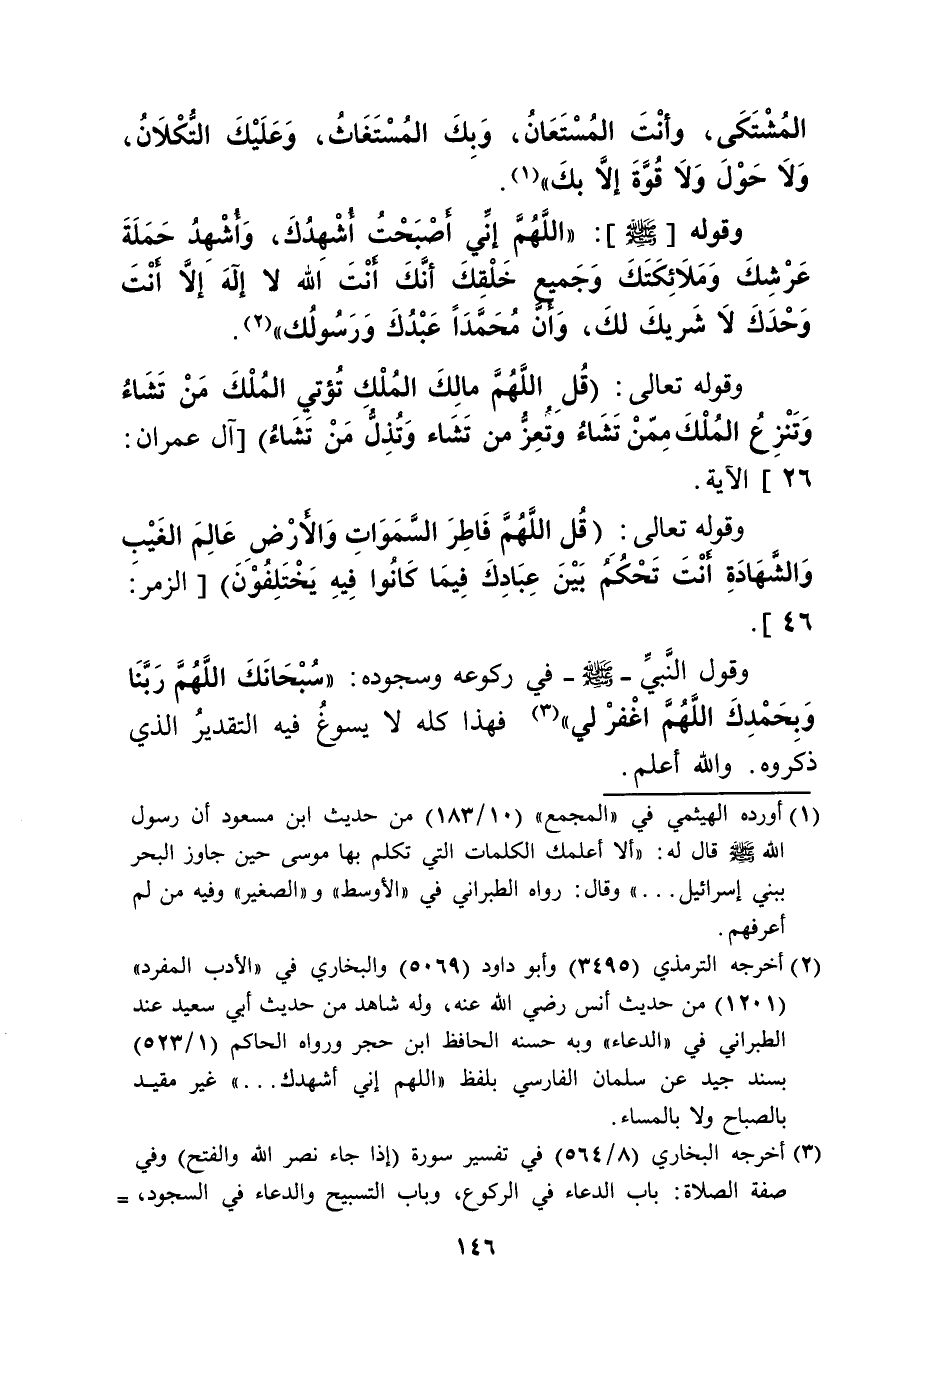 المُشْتَكَى، وأنْتَ المُسْتَعَانُ، وَبِكَ المُسْتَغَاثُ، وَعَلَيْكَ التُّكْلَانُ،
وَلَا حَوْلَ وَلَا قُوَّةَ إلَّا بكَ»(١).
وقوله [ ﷺ ]: «اللَّهُمَّ إنِّي أَصْبَحْتُ أُشْهِدُكَ، وَأُشْهِدُ حَمَلَةَ
عَرْشِكَ وَمَلَائِكَتَكَ وَجَمِيع خَلْقِكَ أنَّكَ أَنْتَ الله لا إلَهَ إلَّا أَنْتَ
وَحْدَكَ لَا شَرِيكَ لكَ، وَأَنَّ مُحَمَّدَاً عَبْدُكَ وَرَسُولُك»(٢).
وقوله تعالى: (قُلِ اللَّهُمَّ مالِكَ المُلْكِ تُؤتي المُلْكَ مَنْ تَشَاءُ
وَتَنْزِعُ المُلْكَ مِمّنْ تَشَاءُ وتُعِزُّ من تَشَاء وَتُذِلُّ مَنْ تَشَاءُ) [آل عمران:
٢٦ ] الآية.
وقوله تعالى: ( قُل اللَّهُمَّ فَاطِرَ السَّمَوَاتِ وَالأَرْضِ عَالِمَ الغَيْبِ
وَالشَّهَادَةِ أَنْتَ تَحْكُمُ بَيْنَ عِبَادِكَ فِيمَا كَانُوا فِيهِ يَخْتَلِفُوْنَ) [ الزمر:
٤٦ ].
وقول النَّبيِّ - ﷺ - في ركوعه وسجوده: «سُبْحَانَكَ اللَّهُمَّ رَبَّنَا
وَبِحَمْدِكَ اللَّهُمَّ اغْفرْ لي»(٣) فهذا كله لا يسوغُ فيه التقديرُ الذي
ذكروه. والله أعلم.
(١) أورده الهيثمي في «المجمع» (١٨٣/١٠) من حديث ابن مسعود أن رسول
الله ﷺ قال له: «ألا أعلمك الكلمات التي تكلم بها موسى حين جاوز البحر
ببني إسرائيل...» وقال: رواه الطبراني في «الأوسط» و«الصغير» وفيه من لم
أعرفهم.
(٢) أخرجه الترمذي (٣٤٩٥) وأبو داود (٥٠٦٩) والبخاري في «الأدب المفرد»
(١٢٠١) من حديث أنس رضي الله عنه، وله شاهد من حديث أبي سعيد عند
الطبراني في «الدعاء» وبه حسنه الحافظ ابن حجر ورواه الحاكم (٥٢٣/١)
بسند جيد عن سلمان الفارسي بلفظ «اللهم إني أشهدك...» غير مقيد
بالصباح ولا بالمساء.
(٣) أخرجه البخاري (٥٦٤/٨) في تفسير سورة (إذا جاء نصر الله والفتح) وفي
صفة الصلاة: باب الدعاء في الركوع، وباب التسبيح والدعاء في السجود، =
١٤٦